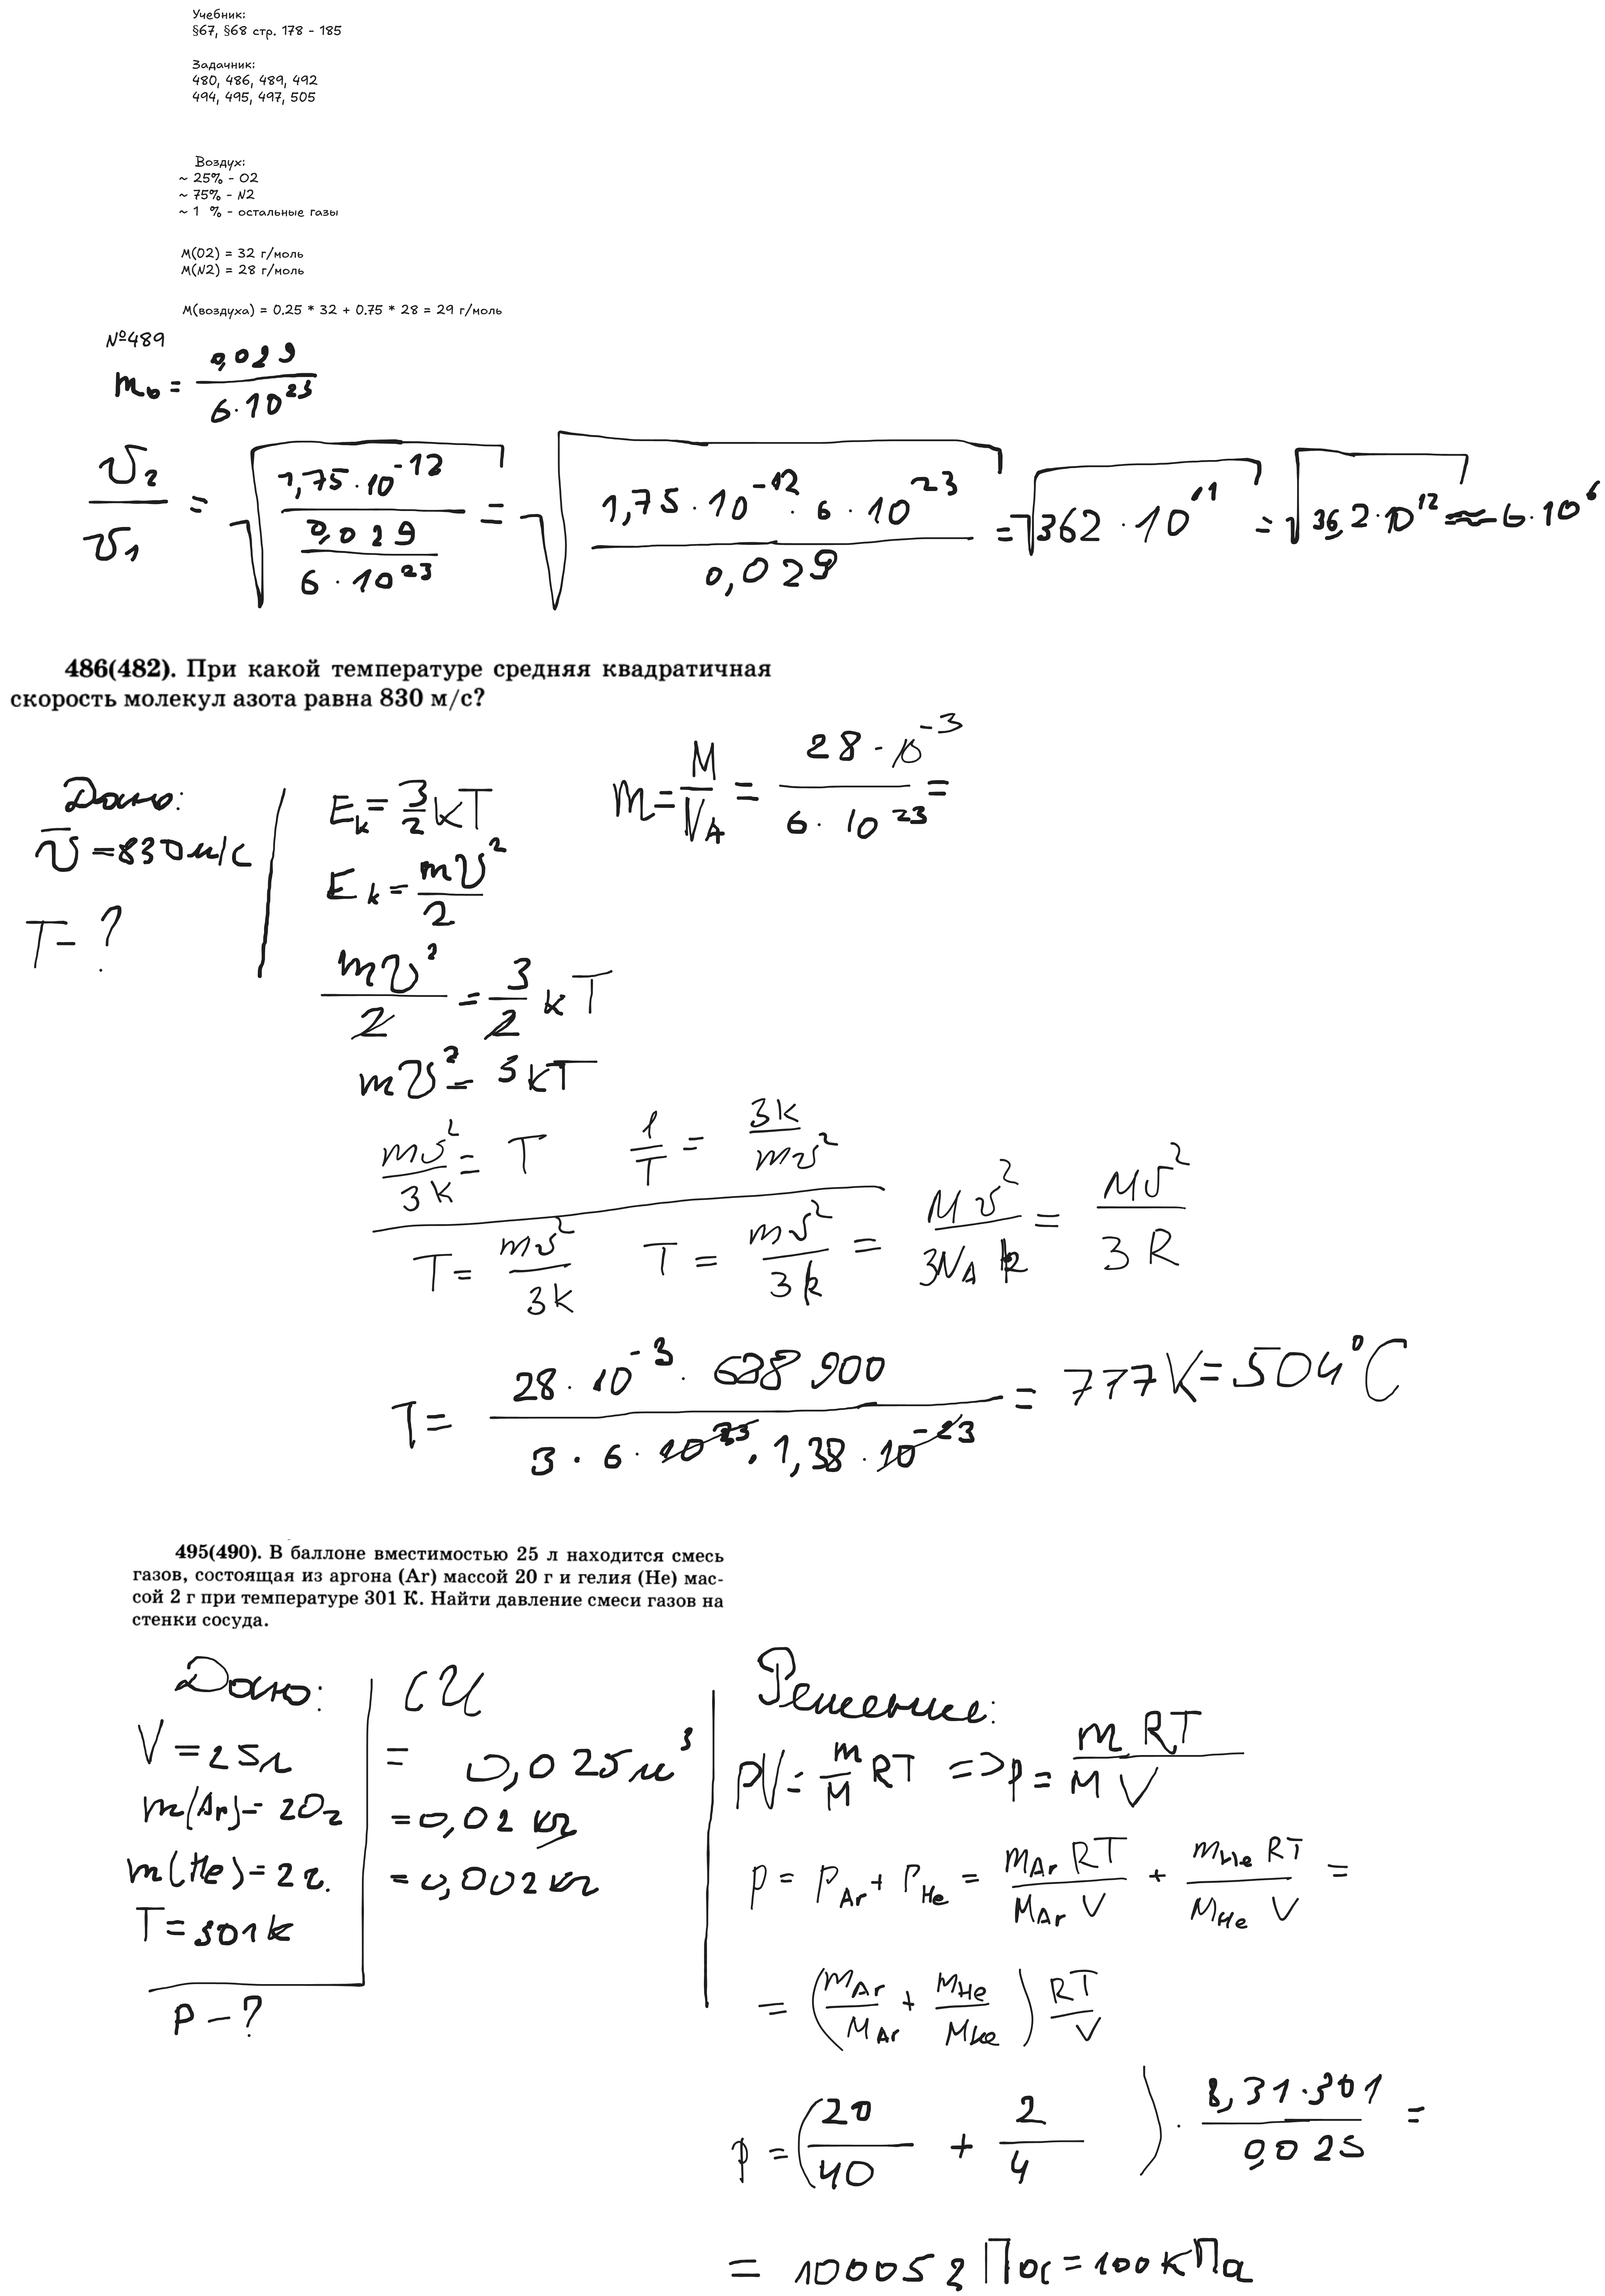 Учебник:
§67, §68 стр. 178 - 185
Задачник:
480, 486, 489, 492
494, 495, 497, 505
Воздух:
~ 25% - O2
~ 75% - N2
~ 1 % - остальные газы
M(O2) = 32 г/моль
M(N2) = 28 г/моль
M(воздуха) = 0.25 * 32 + 0.75 * 28 = 29 г/моль
№489
m₀ = 0,029 / 6·10²³
v₂ / v₁ = √(1,75·10⁻¹² / (0,029 / 6·10²³)) = √(1,75·10⁻¹²·6·10²³ / 0,029) = √(362·10¹¹) = √(36,2·10¹²) ≈ 6·10⁶
486(482). При какой температуре средняя квадратичная
скорость молекул азота равна 830 м/с?
Дано:
v̅ = 830 м/с
T = ?
Eₖ = 3/2 kT
Eₖ = mv² / 2
m = M / N_A = 28·10⁻³ / 6·10²³ =
mv² / 2 = 3/2 kT
mv² = 3kT
mv² / 3k = T 1/T = 3k / mv²
T = mv² / 3k T = mv² / 3k = Mv² / 3N_A k = Mv² / 3R
T = 28·10⁻³·688 900 / 3·6·10²³·1,38·10⁻²³ = 777K = 504°C
495(490). В баллоне вместимостью 25 л находится смесь
газов, состоящая из аргона (Ar) массой 20 г и гелия (He) мас-
сой 2 г при температуре 301 К. Найти давление смеси газов на
стенки сосуда.
Дано:
V = 25л
m(Ar) = 20г
m(He) = 2г.
T = 301k
P - ?
СИ
= 0,025м³
= 0,02 кг
= 0,002 кг
Решение:
pV = m/M RT => p = m RT / M V
p = p_Ar + p_He = m_Ar RT / M_Ar V + m_He RT / M_He V =
= (m_Ar / M_Ar + m_He / M_He) RT / V
p = (20/40 + 2/4) · 8,31·301 / 0,025 =
= 100052 Па = 100кПа